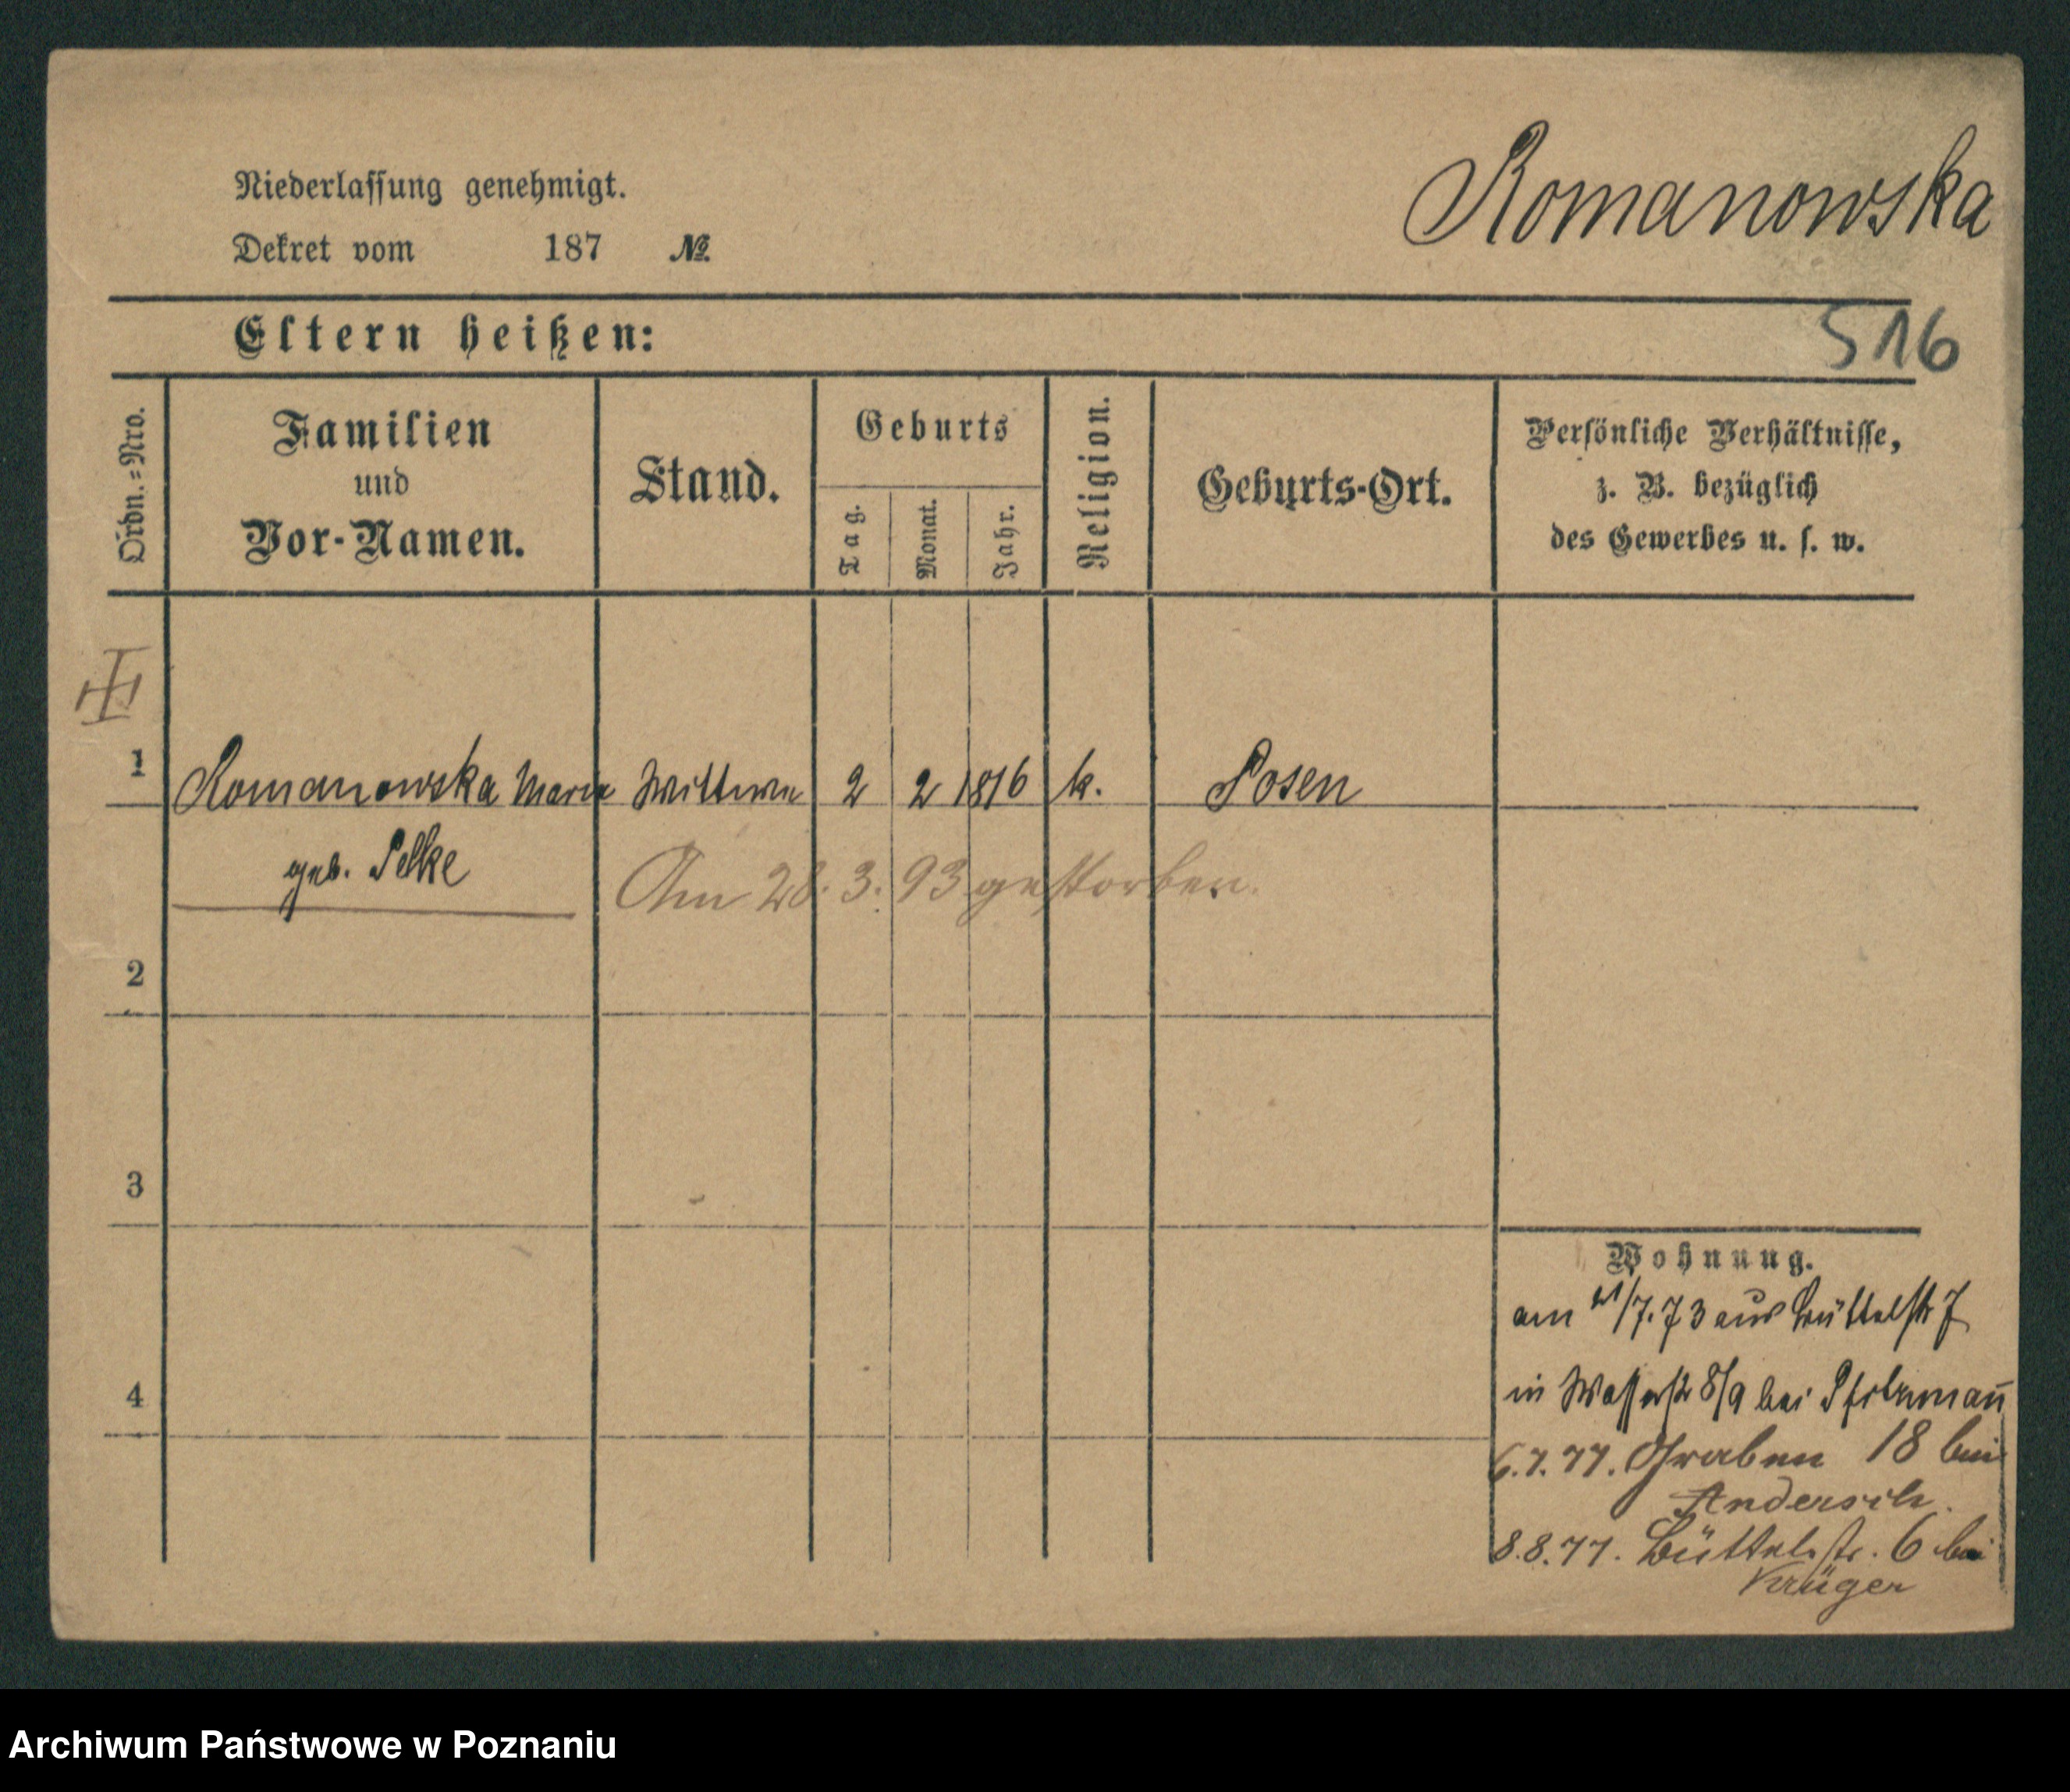 Romanowska
Niederlassung genehmigt.
Dekret vom 187 №
Eltern heißen:
516
Ordn.=Nro.
Familien
und
Vor-Namen.
Stand.
Geburts
Tag.
Monat.
Jahr.
Religion.
Geburts-Ort.
Persönliche Verhältnisse,
z. B. bezüglich
des Gewerbes u. s. w.
1 Romanowska Maria Wittwe 2 2 1816 k. Posen
geb. Pelke
Am 28. 3. 93 gestorben.
2
3
4
Wohnung.
am /7. 73 aus Büttelstr 7
in Wasserstr 8/9 bei
6.7.77. Graben 18 bei
Andersch.
8.8.77. Büttelstr. 6 bei
Krüger
Archiwum Państwowe w Poznaniu